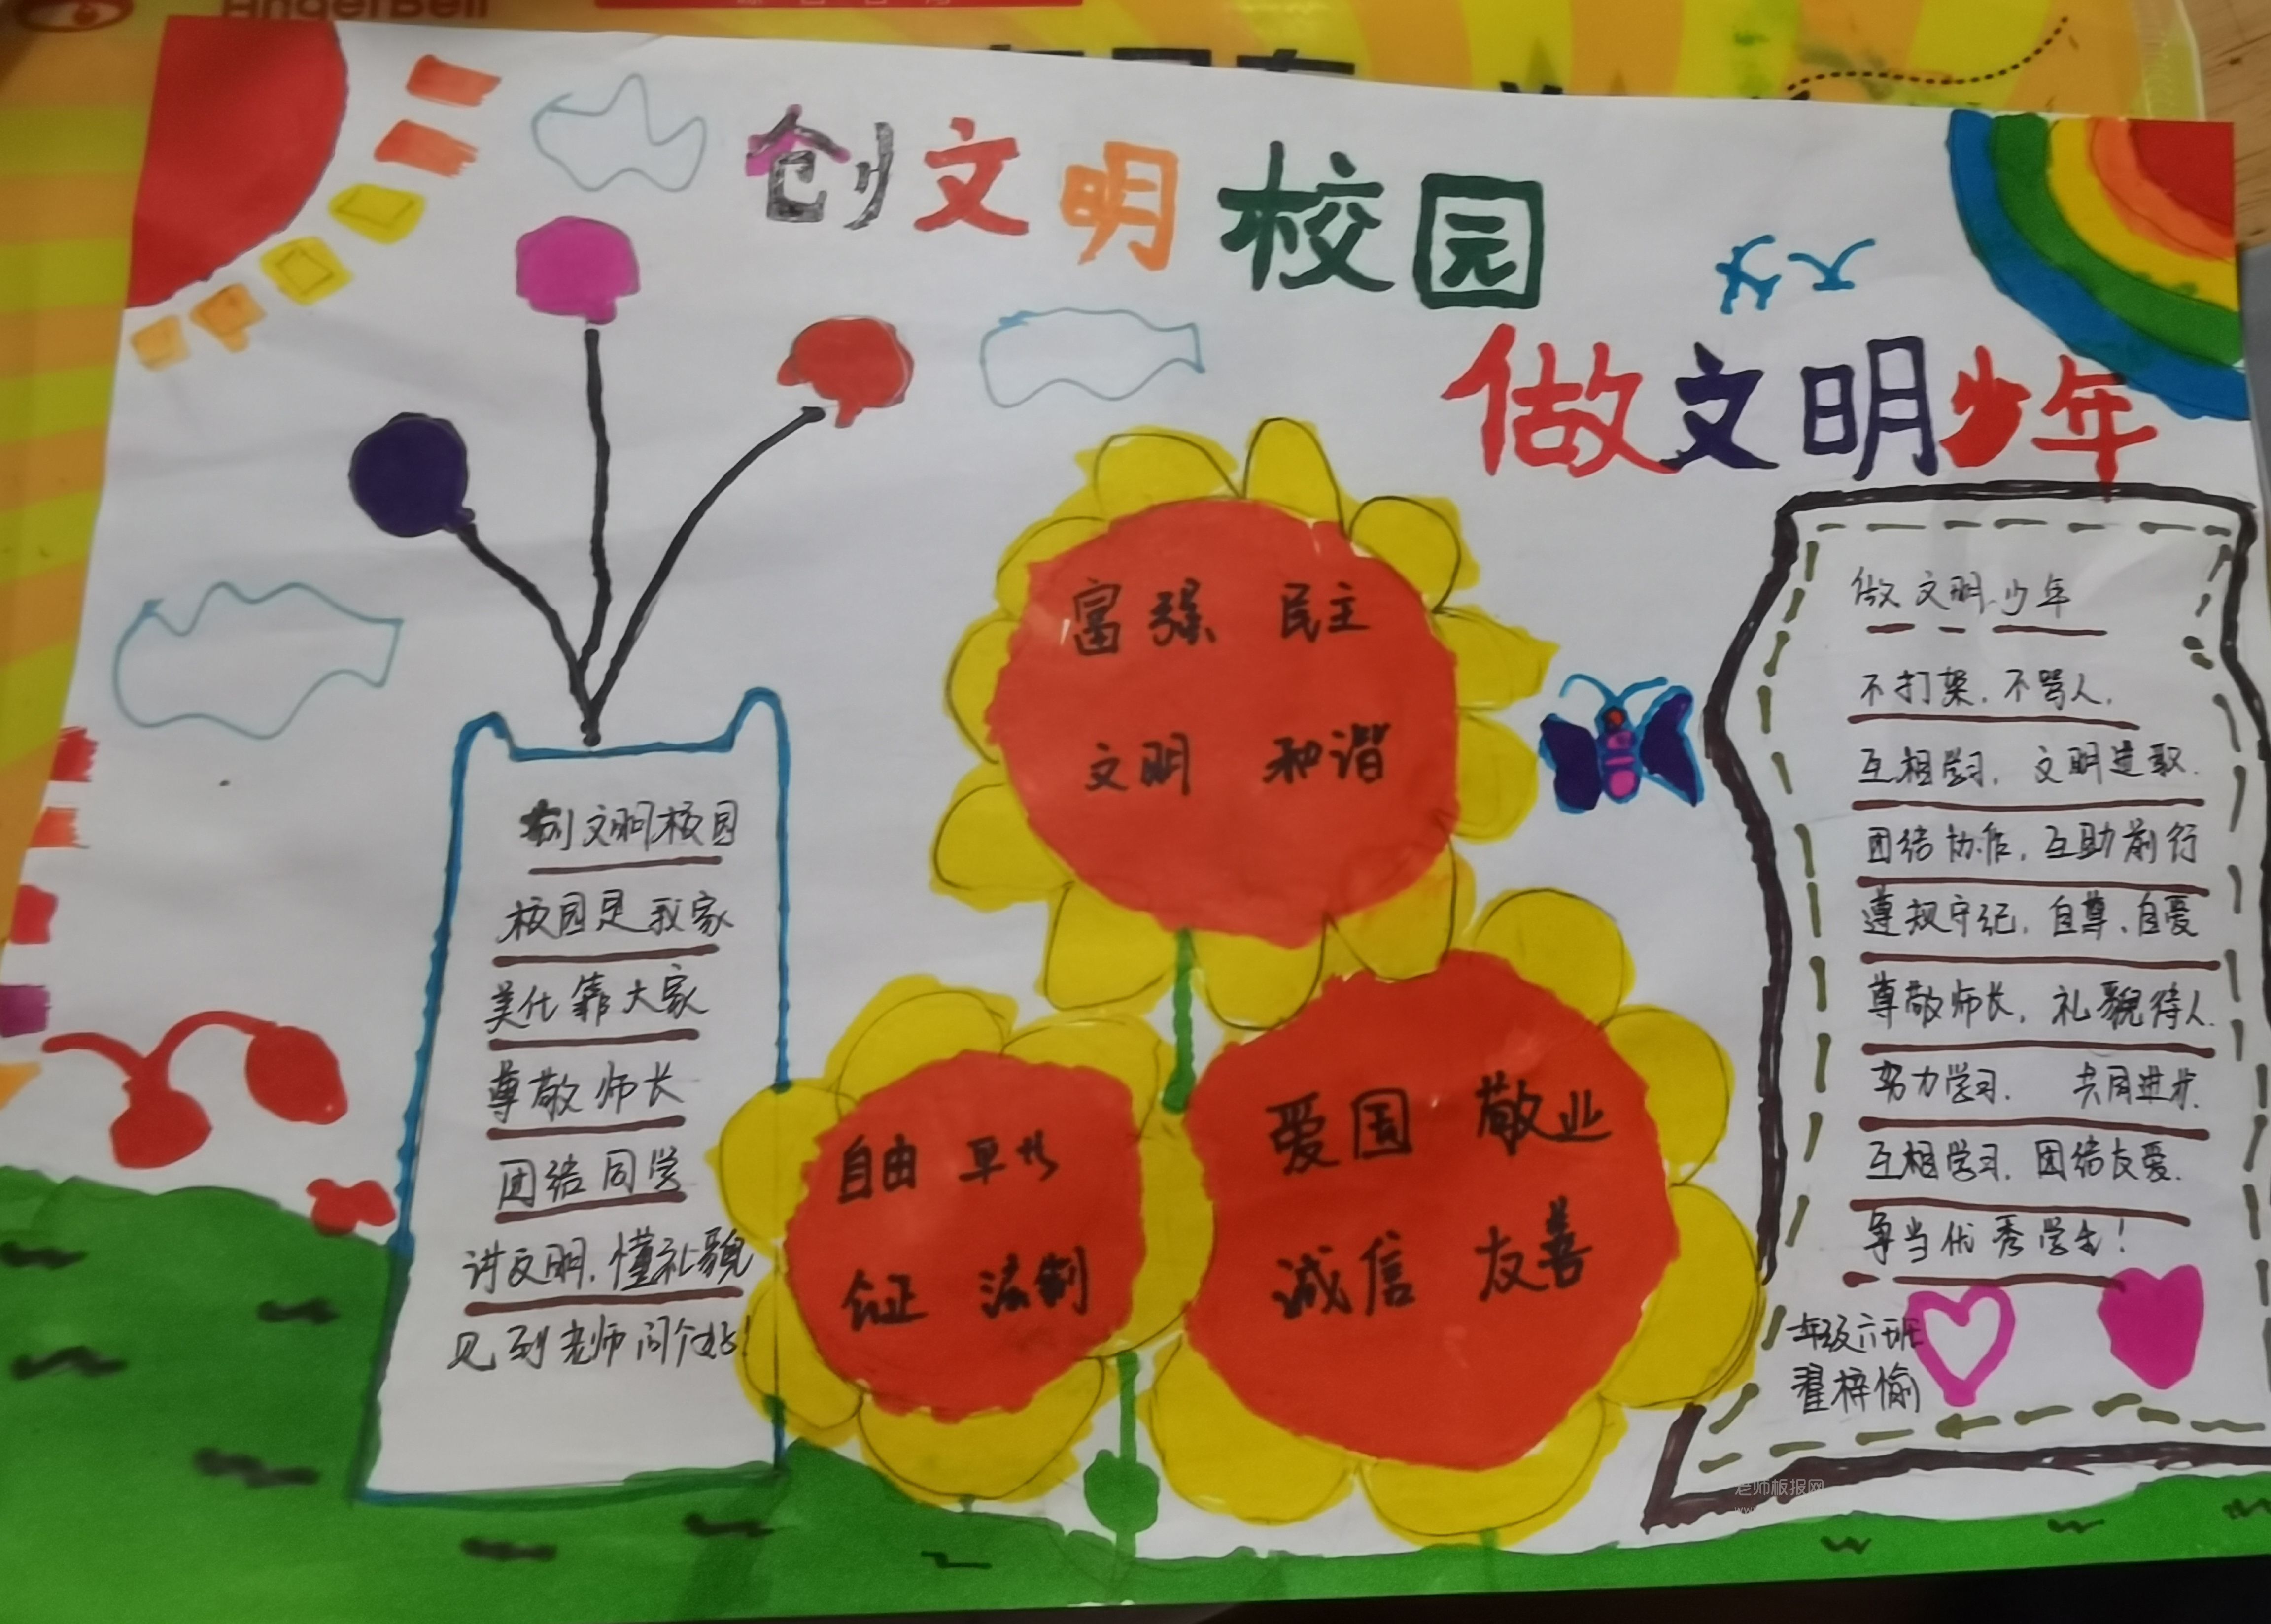 AngerBell
创文明校园
做文明少年
创文明校园
校园是我家
美化靠大家
尊敬师长
团结同学
讲文明，懂礼貌
见到老师问个好！
富强 民主
文明 和谐
自由 平等
公正 法制
爱国 敬业
诚信 友善
做文明少年
不打架，不骂人，
互相学习，文明进取．
团结协作，互助前行
遵规守纪，自尊、自爱
尊敬师长，礼貌待人．
努力学习． 共同进步．
互相学习，团结友爱．
争当优秀学生！
年级六班
翟梓愉
老师板报网